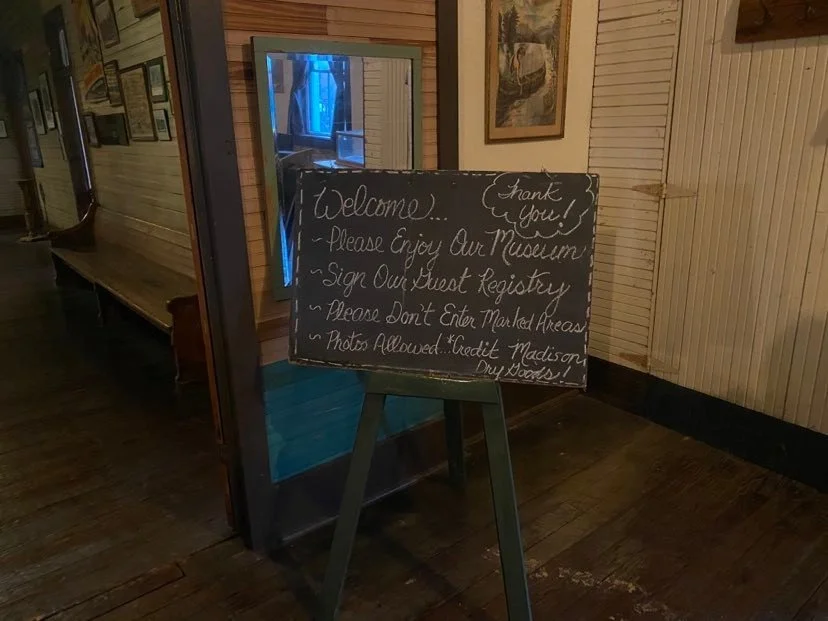 Welcome...
Thank
You!
~ Please Enjoy Our Museum
~ Sign Our Guest Registry
~ Please Don't Enter Marked Areas
~ Photos Allowed...*Credit Madison
Dry Goods!